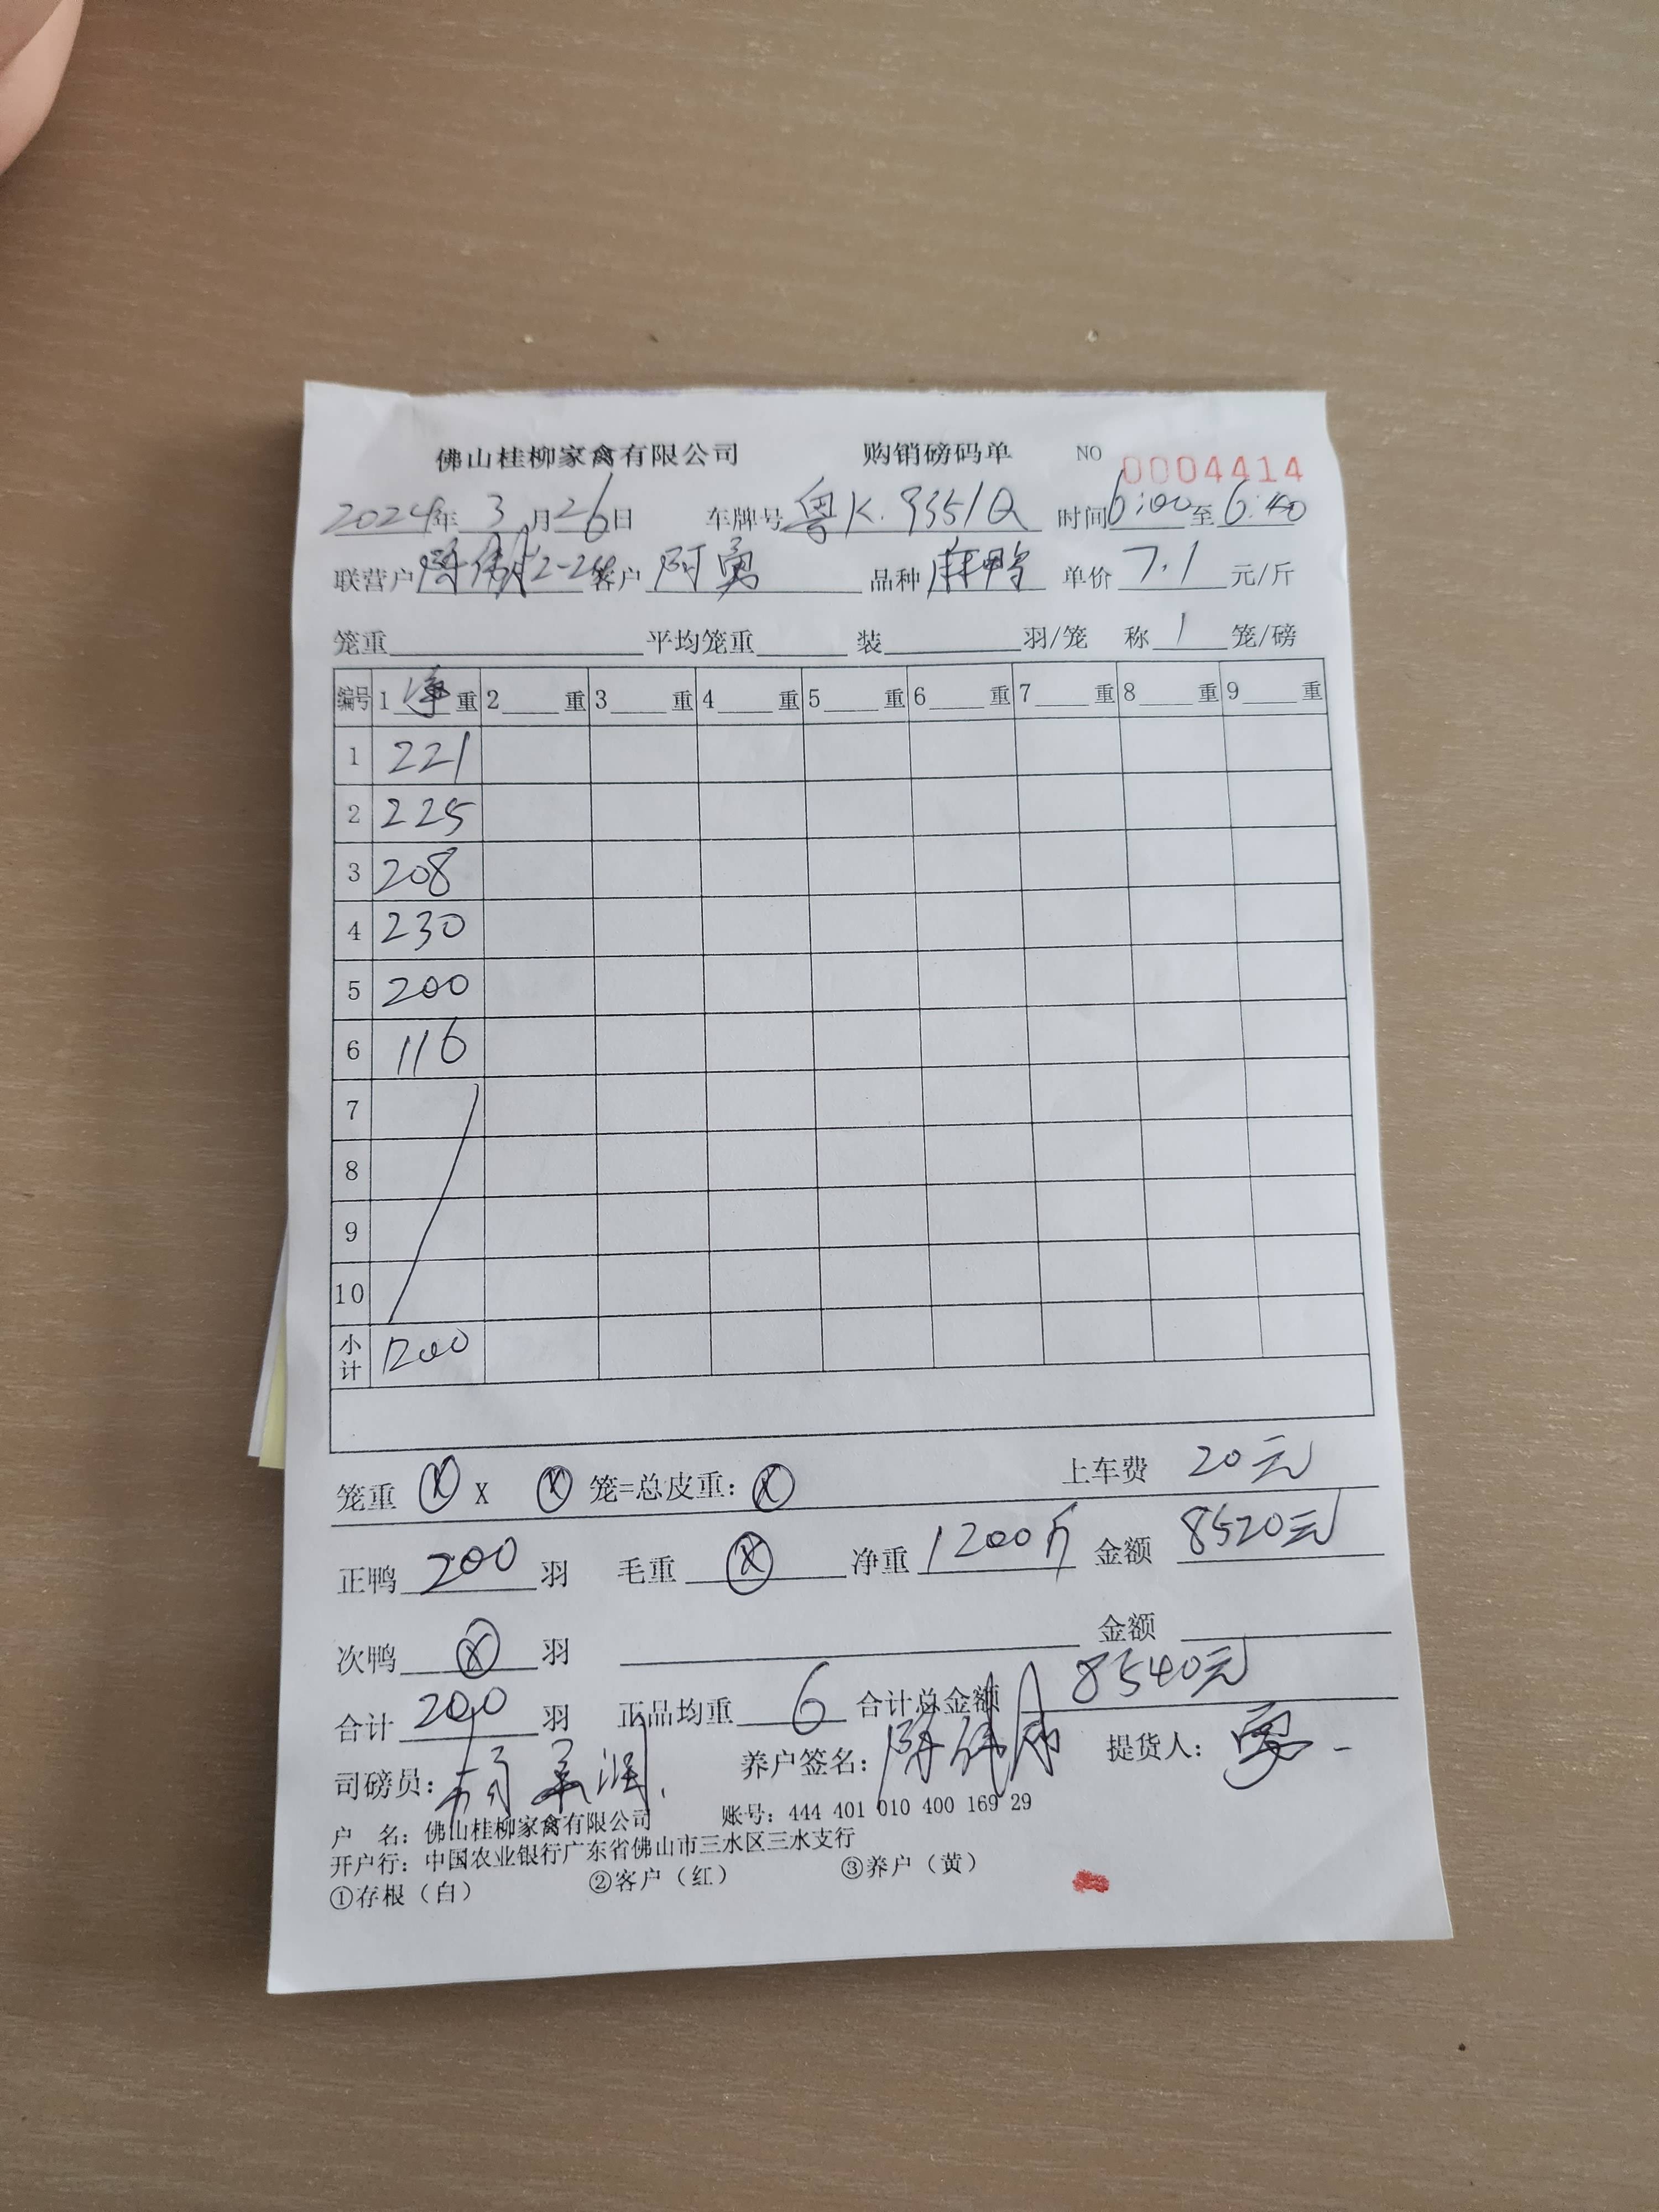 佛山桂柳家禽有限公司 购销磅码单 NO 0004414
2024年 3 月 26 日 车牌号 粤K.9351Q 时间 6:00 至 6:40
联营户 客户 阿勇 品种 麻鸭 单价 7.1 元/斤
笼重 平均笼重 装 羽/笼 称 1 笼/磅
编号 1 净 重 2 重 3 重 4 重 5 重 6 重 7 重 8 重 9 重
1 221
2 225
3 208
4 230
5 200
6 116
7
8
9
10
小计 1200
笼重 X x X 笼=总皮重: X 上车费 20元
正鸭 200 羽 毛重 X 净重 1200斤 金额 8520元
次鸭 X 羽 金额
合计 200 羽 正品均重 6 合计总金额 8540元
司磅员: 养户签名: 提货人:
户 名: 佛山桂柳家禽有限公司 账号: 444 401 010 400 169 29
开户行: 中国农业银行广东省佛山市三水区三水支行
①存根（白） ②客户（红） ③养户（黄）